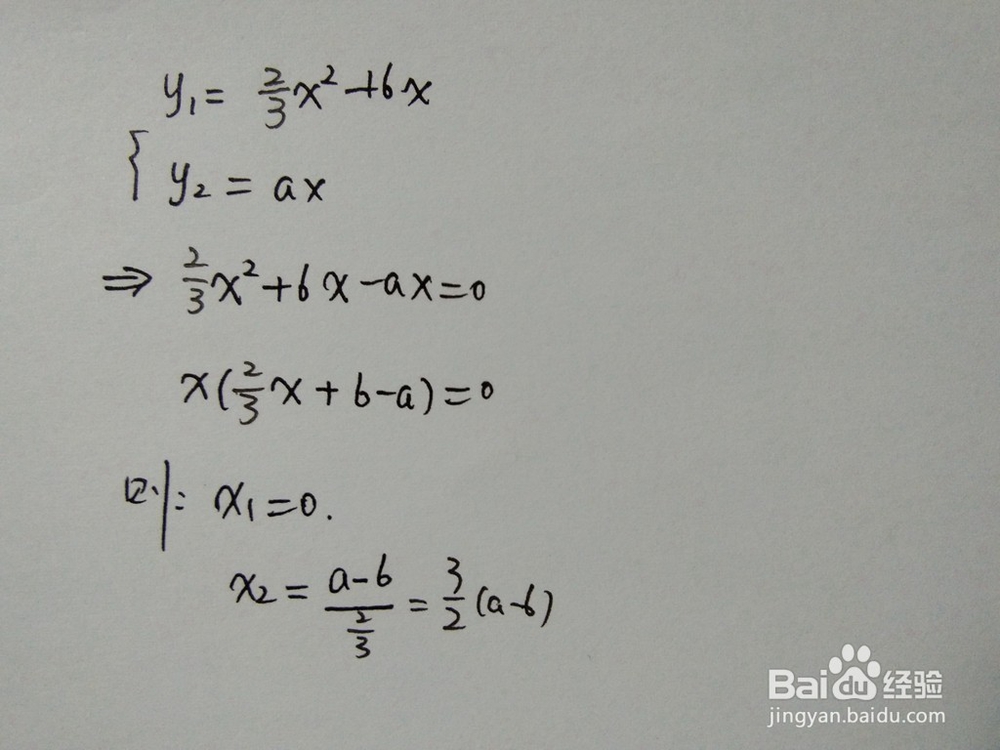 y₁ = 2/3 x² + 6x
{ y₂ = ax
⇒ 2/3 x² + 6x - ax = 0
x(2/3 x + 6 - a) = 0
则: x₁ = 0.
x₂ = (a-6)/(2/3) = 3/2 (a-6)
Baidu 经验
jingyan.baidu.com